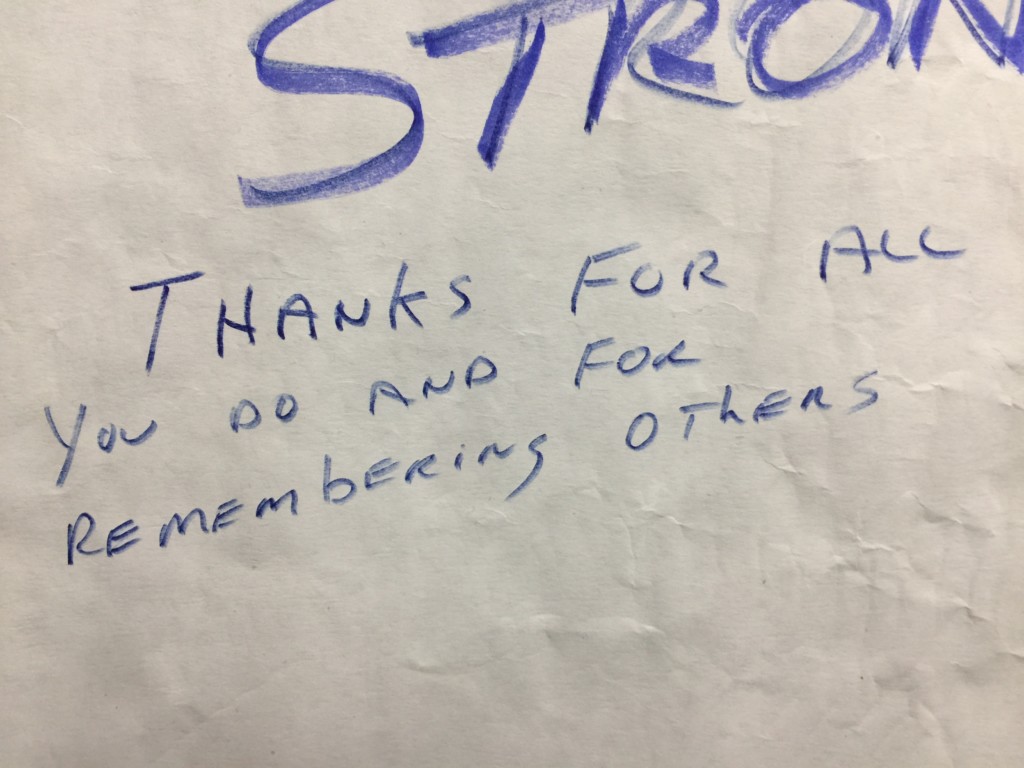 STRON
THANKS FOR ALL
YOU DO AND FOR
REMEMBERING OTHERS